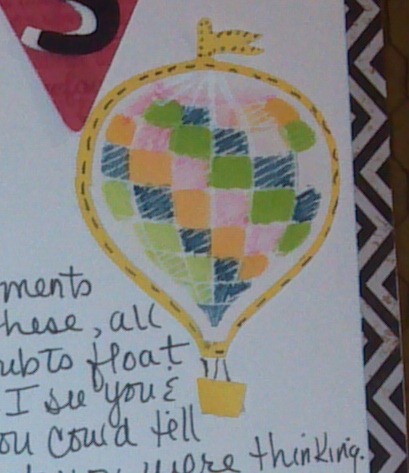 S
ments
hese, all
ub to float
I see you &
ou could tell
were thinking.